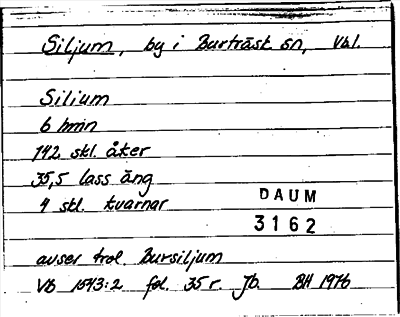 Siljum, by i Burträsk sn, Vbl.
Silium
6 hmn
142 skl. åker
35,5 lass äng
4 skl. kvarnar
DAUM
3162
avser trol. Bursiljum
VB 1543:2 fol. 35 r. Jb. BH 1976